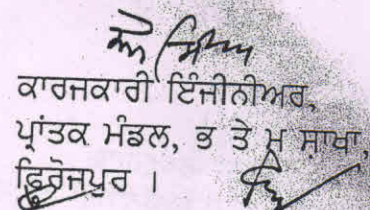 ਕਾਰਜਕਾਰੀ ਇੰਜੀਨੀਅਰ,
ਪ੍ਰਾਂਤਕ ਮੰਡਲ, ਭ ਤੇ ਮ ਸ਼ਾਖਾ,
ਫਿਰੋਜਪੁਰ ।